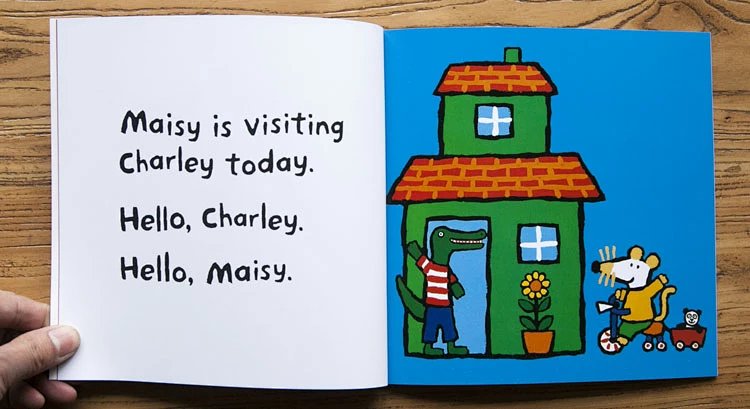 Maisy is visiting
Charley today.
Hello, Charley.
Hello, Maisy.